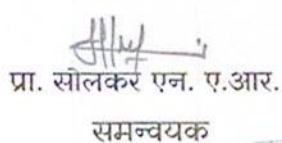 प्रा. सोलकर एन. ए.आर.
समन्वयक